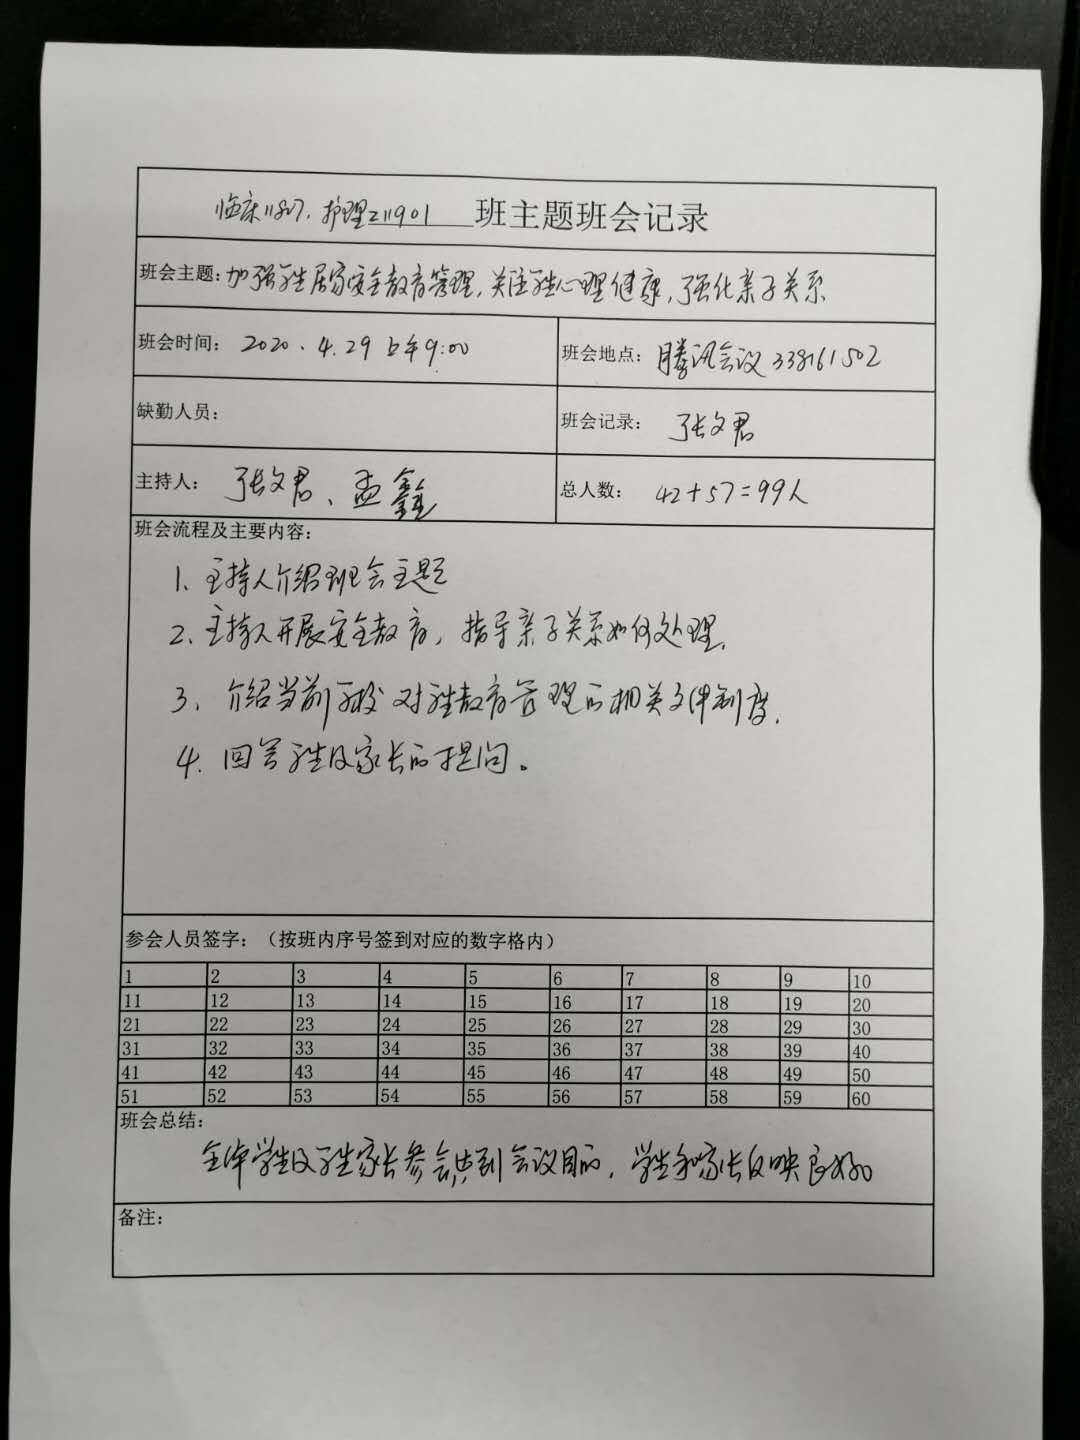 护理211901 班主题班会记录
班会主题：加强学生居家安全教育管理，关注学生心理健康，强化亲子关系
班会时间： 2020.4.29 上午9:00 班会地点： 腾讯会议 338161502
缺勤人员： 班会记录： 张文君
主持人： 张文君、孟鑫 总人数： 42+57=99人
班会流程及主要内容：
1、主持人介绍班会主题
2、主持人开展安全教育，指导亲子关系如何处理.
3、介绍当前学校对学生教育管理的相关文件制度.
4. 回答学生及家长的提问。
参会人员签字：（按班内序号签到对应的数字格内）
1 2 3 4 5 6 7 8 9 10
11 12 13 14 15 16 17 18 19 20
21 22 23 24 25 26 27 28 29 30
31 32 33 34 35 36 37 38 39 40
41 42 43 44 45 46 47 48 49 50
51 52 53 54 55 56 57 58 59 60
班会总结：
全体学生及学生家长参会,达到会议目的，学生和家长反映良好。
备注：